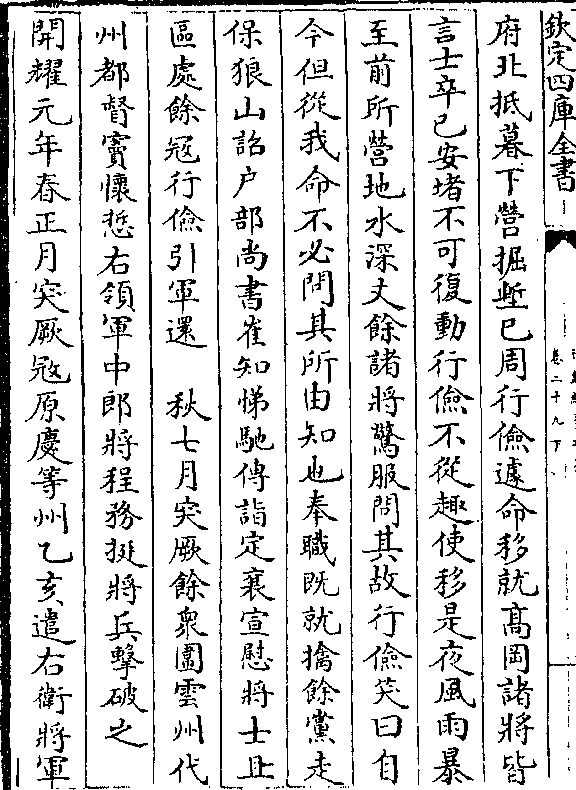 欽定四庫全書
卷二十九下
府北抵暮下營掘塹已周行儉遽命移就髙岡諸將皆
言士卒已安堵不可復動行儉不從趣使移是夜風雨暴
至前所營地水深丈餘諸將驚服問其故行儉笑曰自
今但從我命不必問其所由知也奉職既就擒餘黨走
保狼山詔户部尚書崔知悌馳傳詣定襄宣慰將士且
區處餘冦行儉引軍還　秋七月突厥餘衆圍雲州代
州都督竇懷悊右領軍中郎將程務挺將兵擊破之
開耀元年春正月突厥冦原慶等州乙亥遣右衛將軍